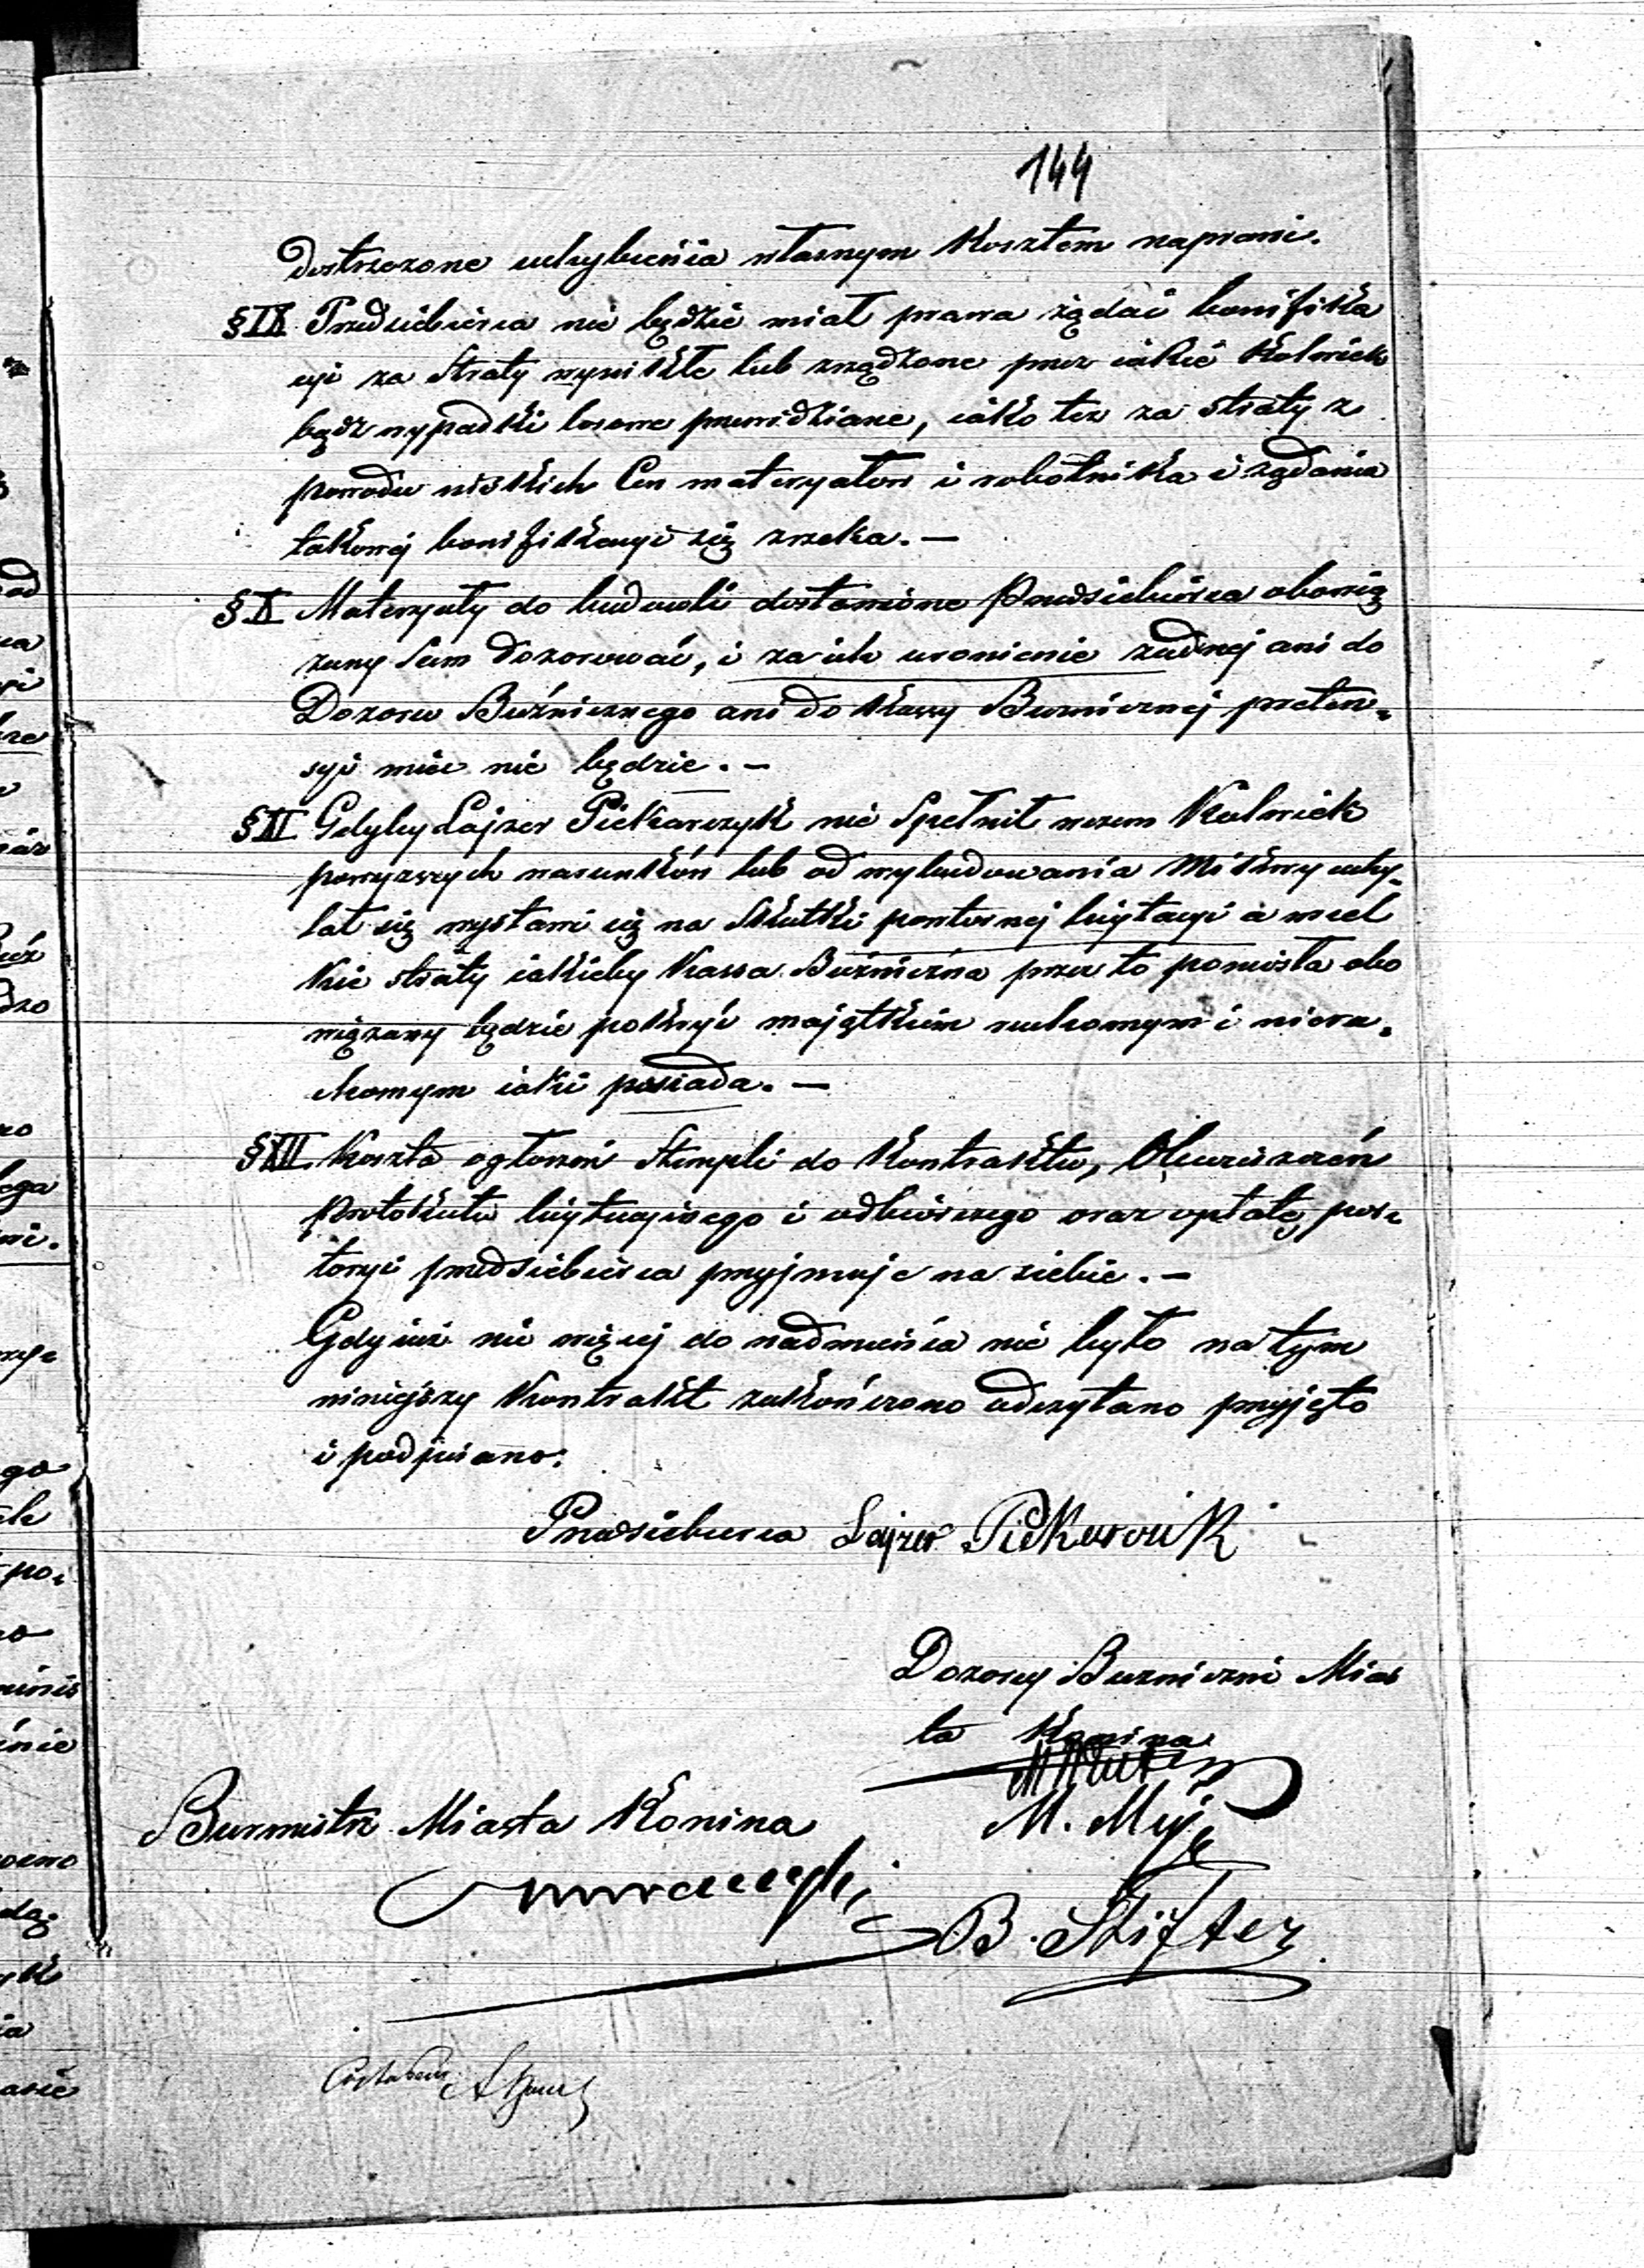 144
dostrzeżone uchybienia własnym Kosztem naprawi.
§ IX Przedsiebierca nie będzie miał prawa żądać bonifika
cyi za Straty wynikłe lub zrządzone przez iakie Kolwiek
bądz wypadki losowe przewidziane, iako też za straty z
powodu niskich Cen materyałow i robotnika i żądania
takowej bonifikacyi się zrzeka. —
§ X Materyały do budowli dostawione Przedsiebierca obowią
zany Sam dozorować, i za ich uronienie żadnej ani do
Dozoru Bużnicznego ani do Kassy Buznicznej preten-
syi mieć nie będzie. —
§ XI Gdyby Lajzer Piekarczyk nie Spełnił w czem Kolwiek
powyższych warunków lub od wybudowania Mikwy uchy-
lał się wystawi się na Skutki powtornej licytacyi a wszel
kie straty iakieby Kassa Bużniczna przez to poniosła obo
wiązany będzie pokryć majątkiem ruchomym i nieru-
chomym iaki posiada. —
§ XII Koszta ogłoszeń Stempli do Kontraktu, Obwieszczeń
Protokułu licytacyinego i odbiorczego oraz opłatę por-
toryi przedsiebierca przyjmuje na siebie. —
Gdy iuż nic więcej do nadmienia nie było na tym
niniejszy Kontrakt zakończono odczytano przyjęto
i podpisano.
Przedsiebierca Lajzer Piekarcik
Dozorcy Buzniczni Mias
ta Konina
Burmistrz Miasta Konina
M.
B. Stifter